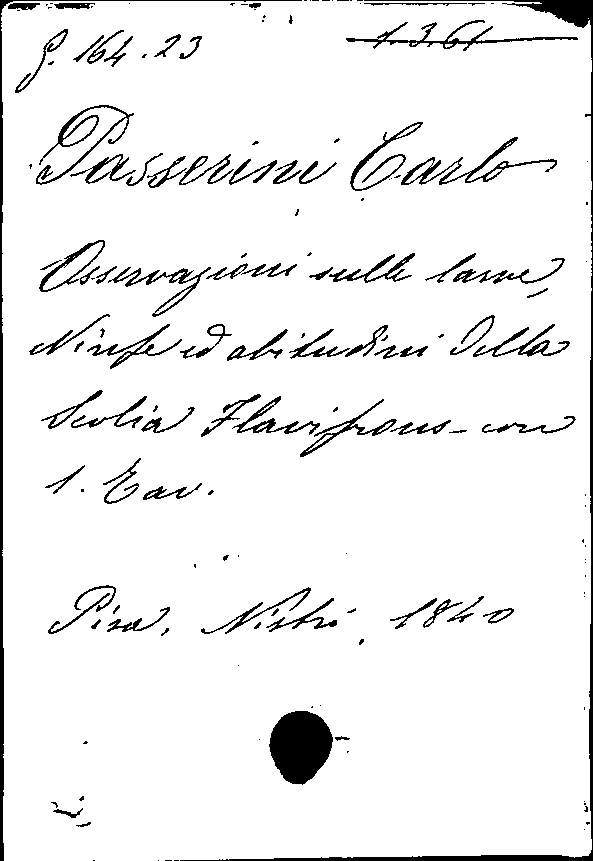 g. 164.23 1.3.61
Passerini Carlo
Osservazioni sulle larve,
Ninfe ed abitudini della
Scolia Flavifrons - con
1. Tav.
Pisa, Nistri, 1840